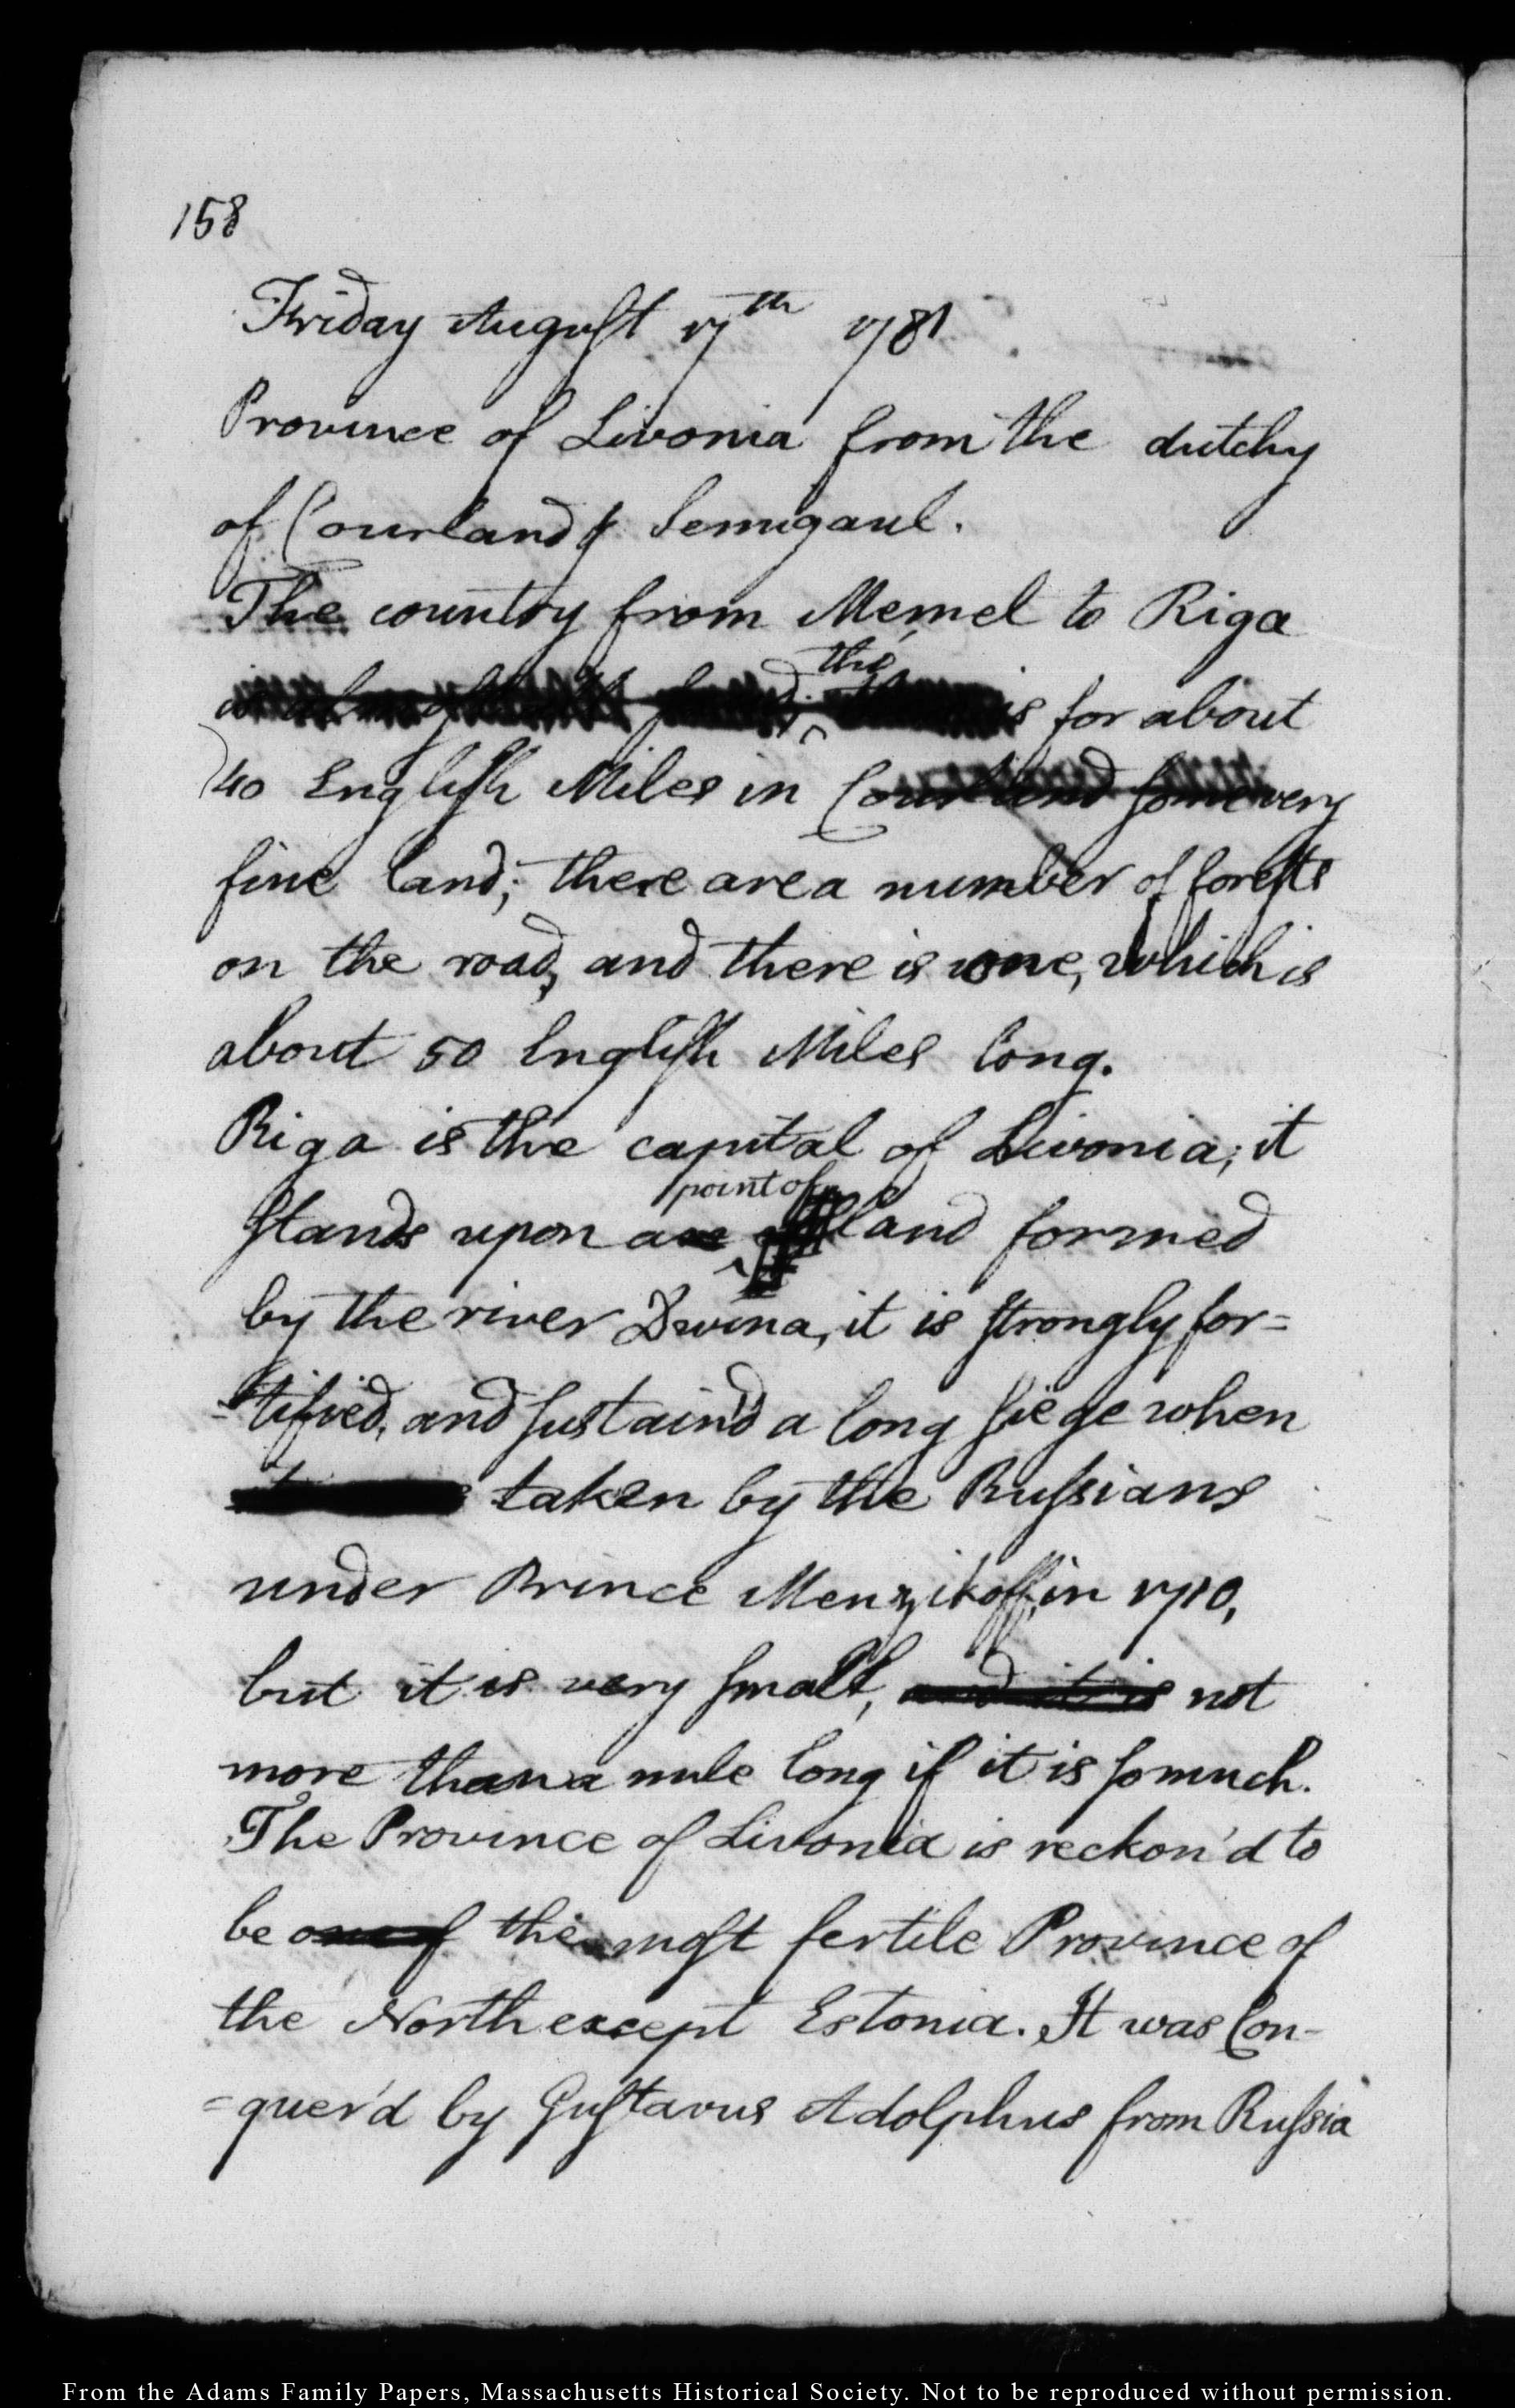 158
Friday August 17th 1781
Province of Livonia from the dutchy
of Courland & Semigaul.
The country from Memel to Riga
the
is for about
40 English Miles in Courland some very
fine land; there are a number of forests
on the road, and there is one, which is
about 50 English Miles long.
Riga is the capital of Livonia; it
point of
stands upon a land formed
by the river Dwina, it is strongly for=
=tified, and sustain'd a long siege when
taken by the Russians
under Prince Menzikoff, in 1710,
but it is very small, and it is not
more than a mile long if it is so much.
The Province of Livonia is reckon'd to
be one of the most fertile Province of
the North except Estonia. It was Con-
=quer'd by Gustavus Adolphus from Russia
From the Adams Family Papers, Massachusetts Historical Society. Not to be reproduced without permission.